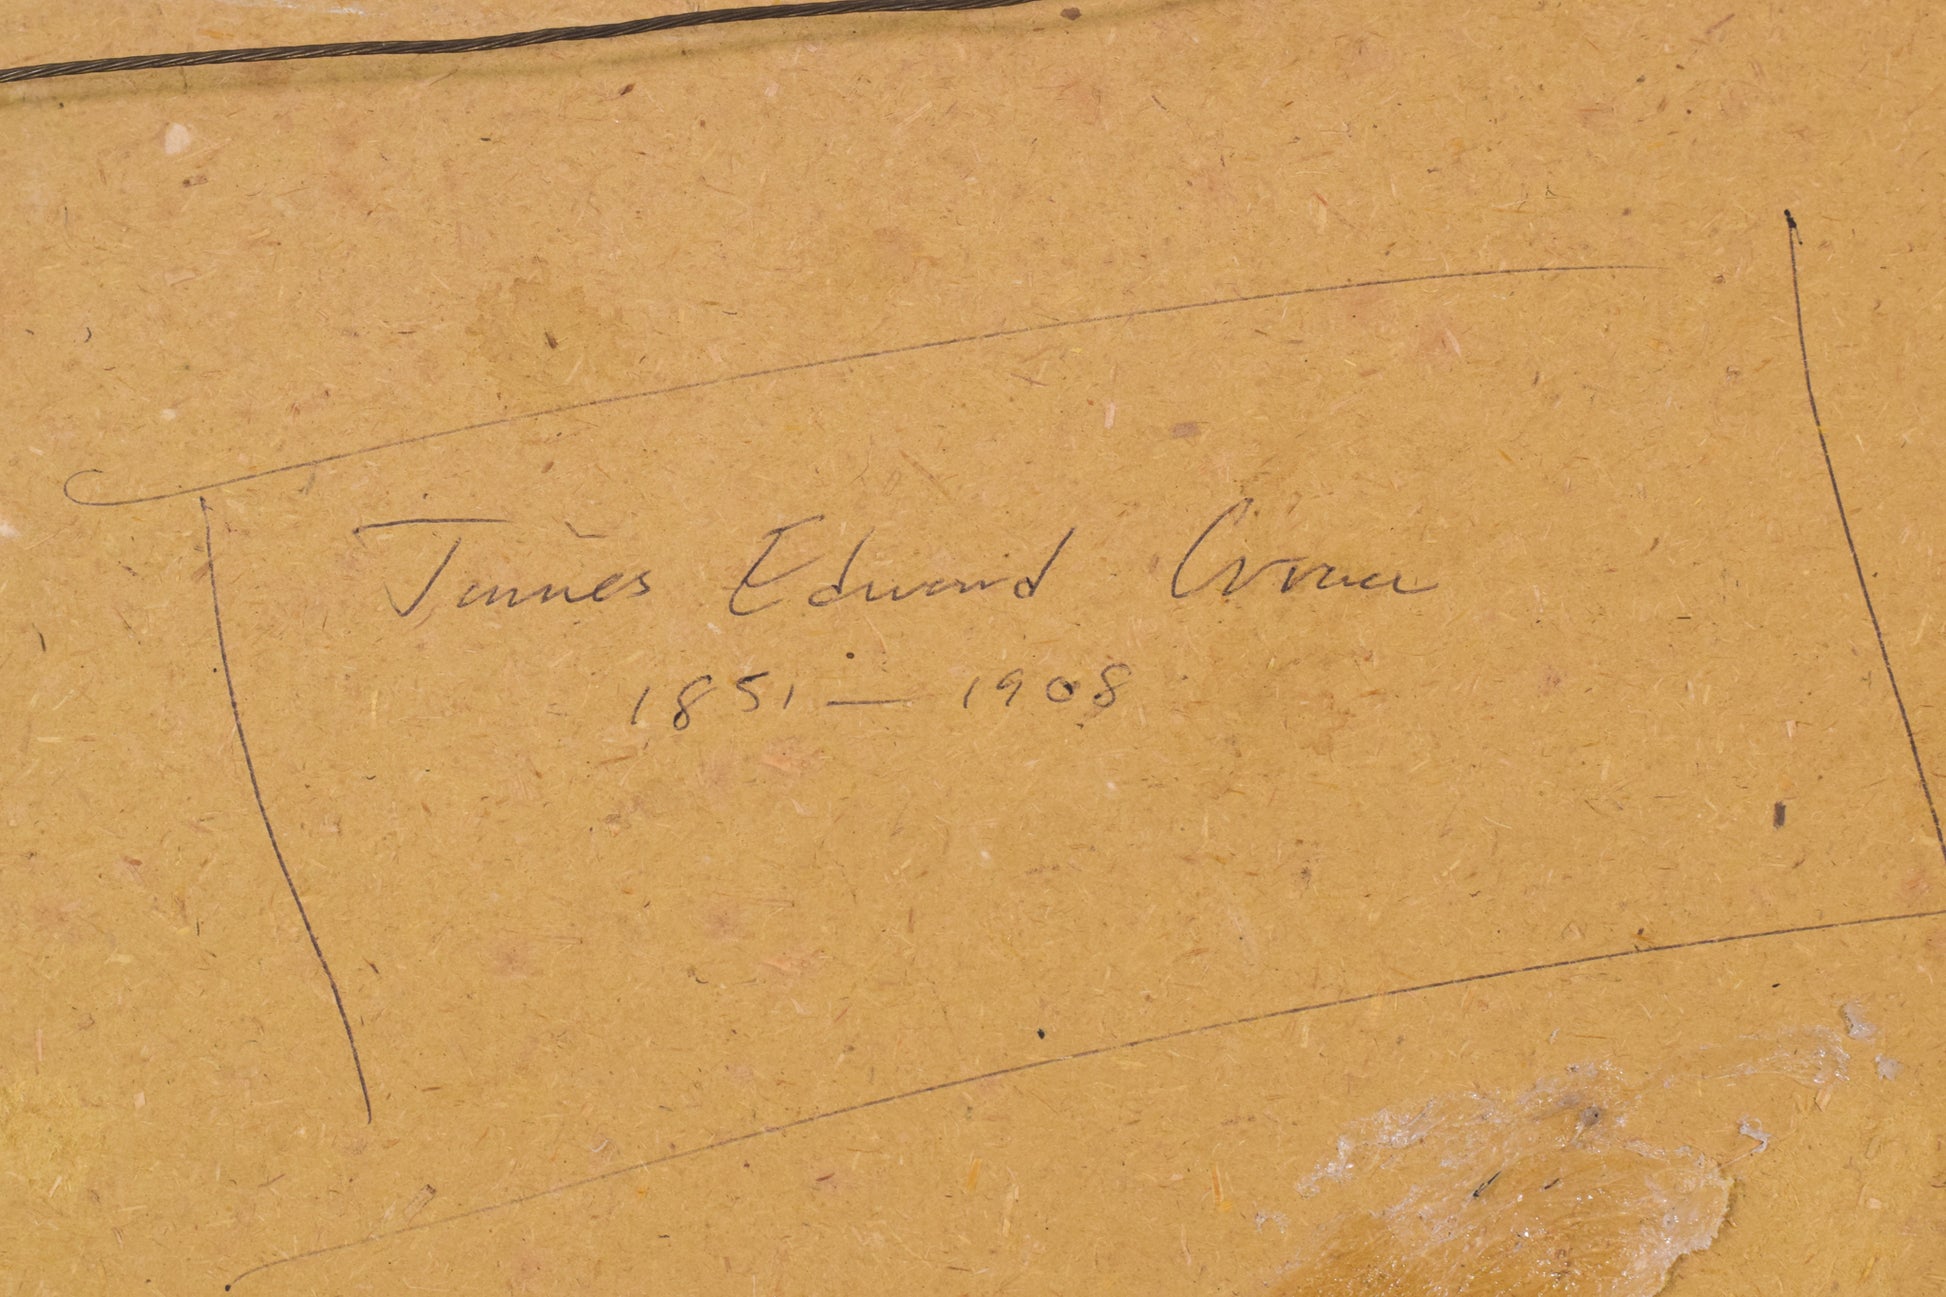 James Edward
1851 — 1908